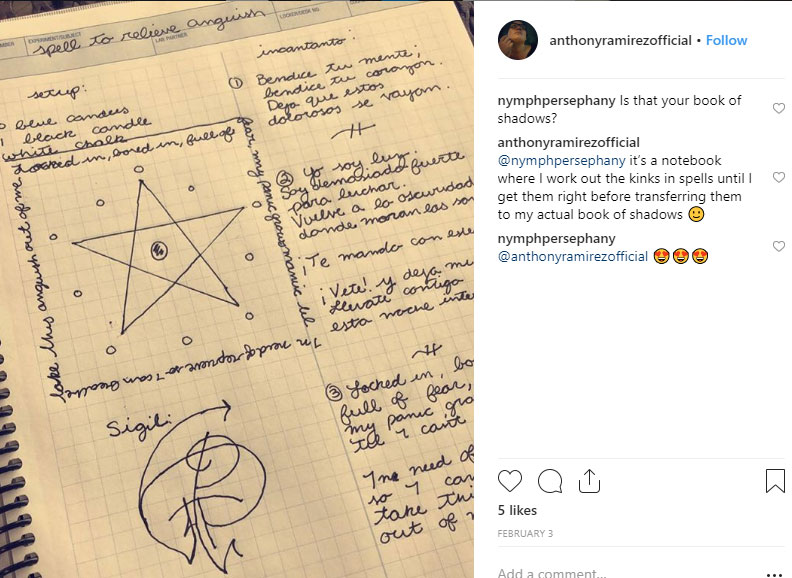 EXPERIMENT/SUBJECT
LAB PARTNER
LOCKER/DESK NO.
spell to relieve anguish
setup:
blue candles
1 black candle
white chalk
Locked in, bored in, full of
fear, my panic grows manic til
I'm need of reprieve so I can breathe
take this anguish out of me,
Sigil:
incantanto:
① Bendice tu mente;
bendice tu corazon.
Deja que estos
dolorosos se vayan.
② Yo soy luz.
Soy demasiado fuerte
para luchar.
Vuelve a la oscuridad
donde moran las
¡Te mando con
¡Vete! y deja
Llevate contigo
esta noche
③ Locked in,
full of fear,
my panic
til I can't
I'm need of
so I can
take
out of
anthonyramirezofficial • Follow
nymphpersephany Is that your book of
shadows?
anthonyramirezofficial
@nymphpersephany it's a notebook
where I work out the kinks in spells until I
get them right before transferring them
to my actual book of shadows 🙂
nymphpersephany
@anthonyramirezofficial 🤩🤩🤩
5 likes
FEBRUARY 3
Add a comment...